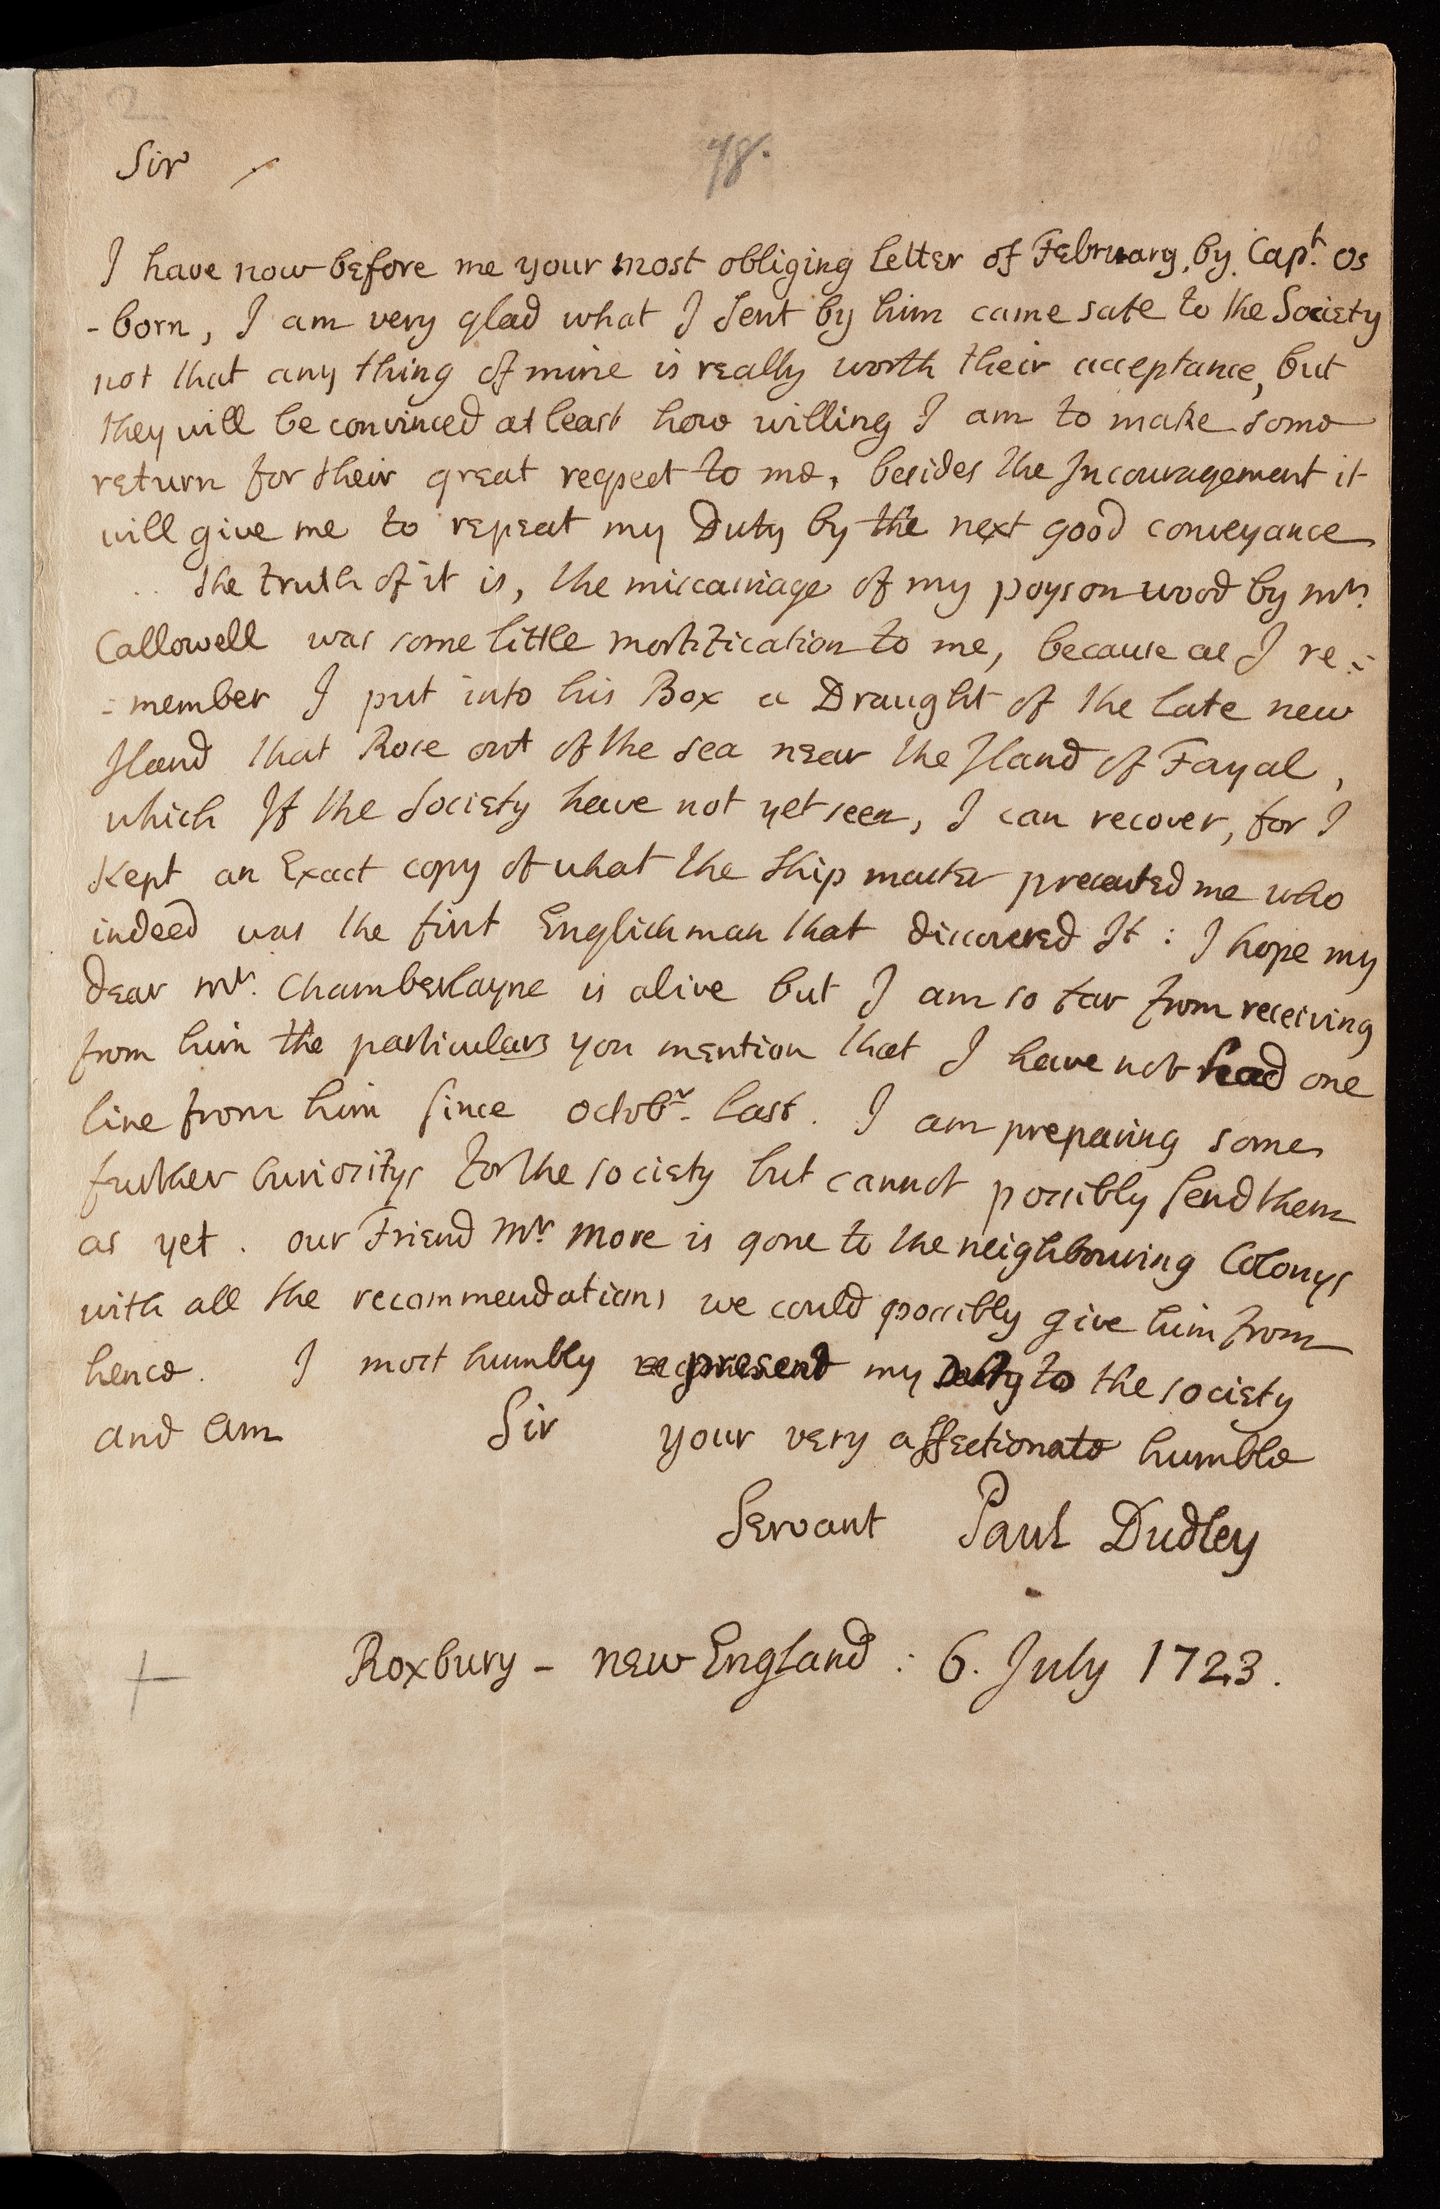 2
78.
Sir
I have now before me your most obliging letter of February, by Capt. Os
-born, I am very glad what I sent by him came safe to the Society
not that any thing of mine is really worth their acceptance, but
they will be convinced at least how willing I am to make some
return for their great respect to me, besides the Incouragement it
will give me to repeat my Duty by the next good conveyance
the truth of it is, the miscarriage of my poyson wood by Mr.
Callowell was some little mortification to me, because as I re=
=member I put into his Box a Draught of the late new
Iland that Rose out of the sea near the Iland of Fayal,
which If the Society have not yet seen, I can recover, for I
kept an Exact copy of what the Ship master presented me who
indeed was the first Englishman that discovered It : I hope my
dear Mr. Chamberlayne is alive but I am so far from receiving
from him the particulars you mention that I have not had one
line from him since Octobr. last. I am preparing some
further Curiositys for the society but cannot possibly send them
as yet. our Friend Mr. More is gone to the neighbouring Colonys
with all the recommendations we could possibly give him from
hence. I most humbly present my Duty to the society
and am Sir your very affectionate humble
Servant Paul Dudley
Roxbury - new England : 6. July 1723.